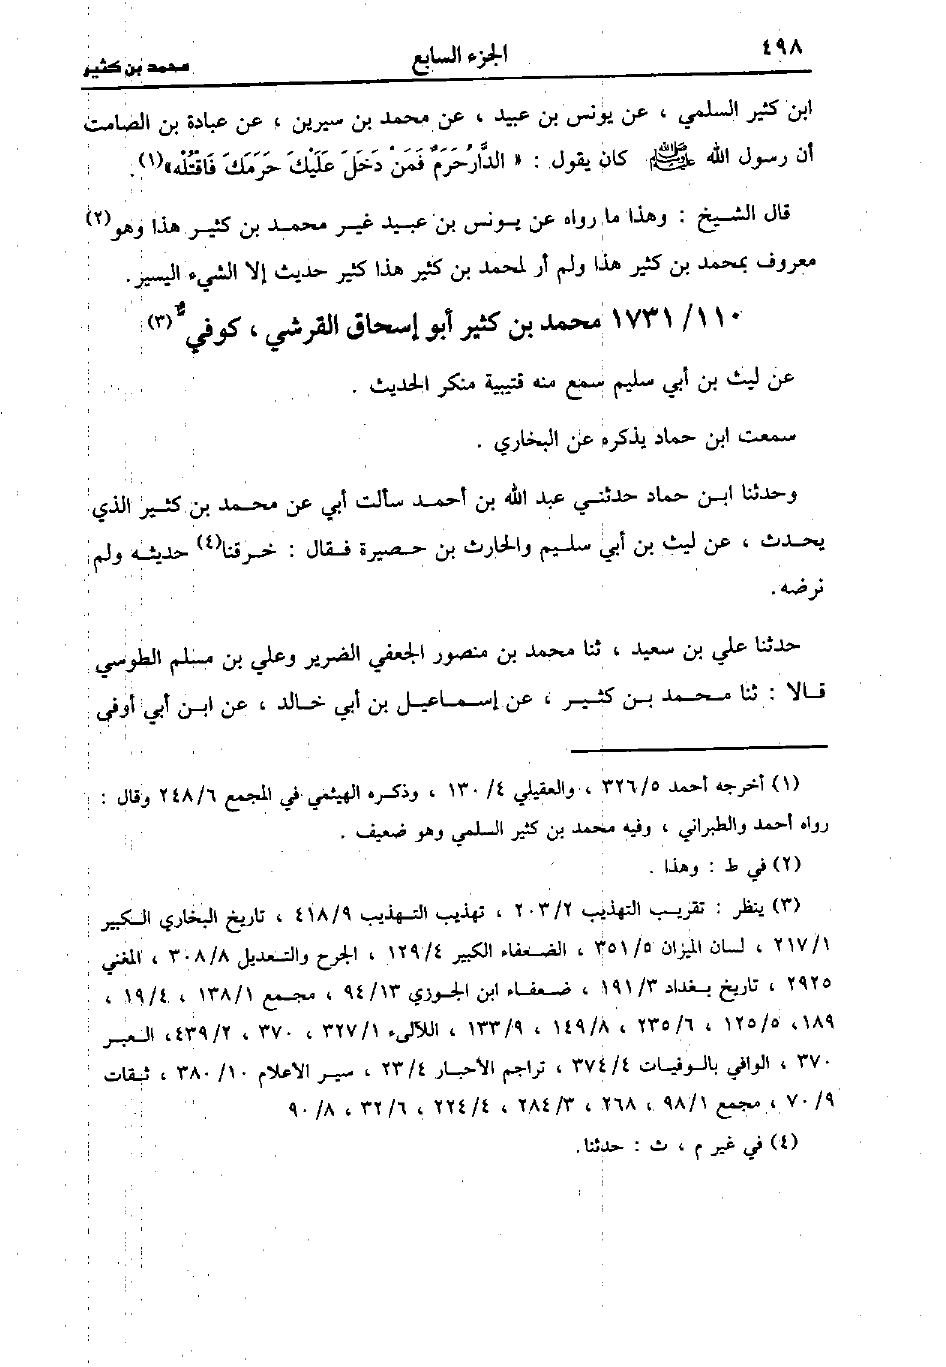 ٤٩٨
الجزء السابع
محمد بن كثير
ابن كثير السلمي ، عن يونس بن عبيد ، عن محمد بن سيرين ، عن عبادة بن الصامت
أن رسول الله ﷺ كان يقول : « الدَّارُ حَرَمٌ فَمَنْ دَخَلَ عَلَيْكَ حَرَمَكَ فَاقْتُلْه»(١).
قال الشيخ : وهذا ما رواه عن يونس بن عبيد غير محمد بن كثير هذا وهو(٢)
معروف بمحمد بن كثير هذا ولم أر لمحمد بن كثير هذا كثير حديث إلا الشيء اليسير.
١٧٣١/١١٠ محمد بن كثير أبو إسحاق القرشي ، كوفي (٣)
عن ليث بن أبي سليم سمع منه قتيبة منكر الحديث .
سمعت ابن حماد يذكره عن البخاري .
وحدثنا ابن حماد حدثني عبد الله بن أحمد سألت أبي عن محمد بن كثير الذي
يحدث ، عن ليث بن أبي سليم والحارث بن حصيرة فقال : خرقنا(٤) حديثه ولم
نرضه.
حدثنا علي بن سعيد ، ثنا محمد بن منصور الجعفي الضرير وعلي بن مسلم الطوسي
قالا : ثنا محمد بن كثير ، عن إسماعيل بن أبي خالد ، عن ابن أبي أوفى
(١) أخرجه أحمد ٣٢٦/٥ ، والعقيلي ١٣٠/٤ ، وذكره الهيثمي في المجمع ٢٤٨/٦ وقال :
رواه أحمد والطبراني ، وفيه محمد بن كثير السلمي وهو ضعيف .
(٢) في ط : وهذا .
(٣) ينظر : تقريب التهذيب ٢٠٣/٢ ، تهذيب التهذيب ٤١٨/٩ ، تاريخ البخاري الكبير
٢١٧/١ ، لسان الميزان ٣٥١/٥ ، الضعفاء الكبير ١٢٩/٤ ، الجرح والتعديل ٣٠٨/٨ ، المغني
٢٩٢٥ ، تاريخ بغداد ١٩١/٣ ، ضعفاء ابن الجوزي ٩٤/١٣ ، مجمع ١٣٨/١ ، ١٩/٤ ،
١٨٩، ١٢٥/٥ ، ٢٣٥/٦ ، ١٤٩/٨ ، ١٣٣/٩ ، اللآلىء ٣٢٧/١ ، ٣٧٠ ، ٤٣٩/٢، العبر
٣٧٠ ، الوافي بالوفيات ٣٧٤/٤ ، تراجم الأحبار ٢٣/٤ ، سير الأعلام ٣٨٠/١٠ ، ثقات
٧٠/٩ ، مجمع ٩٨/١ ، ٢٦٨ ، ٢٨٤/٣ ، ٢٢٤/٤ ، ٣٢/٦ ، ٩٠/٨
(٤) في غير م ، ث : حدثنا.